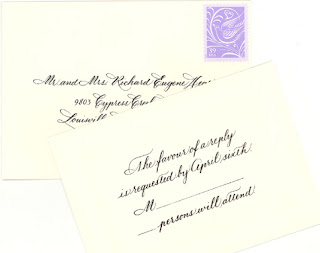 Mr and Mrs. Richard Eugene
9803 Cypress
The favour of a reply
is requested by April sixth
M
persons will attend